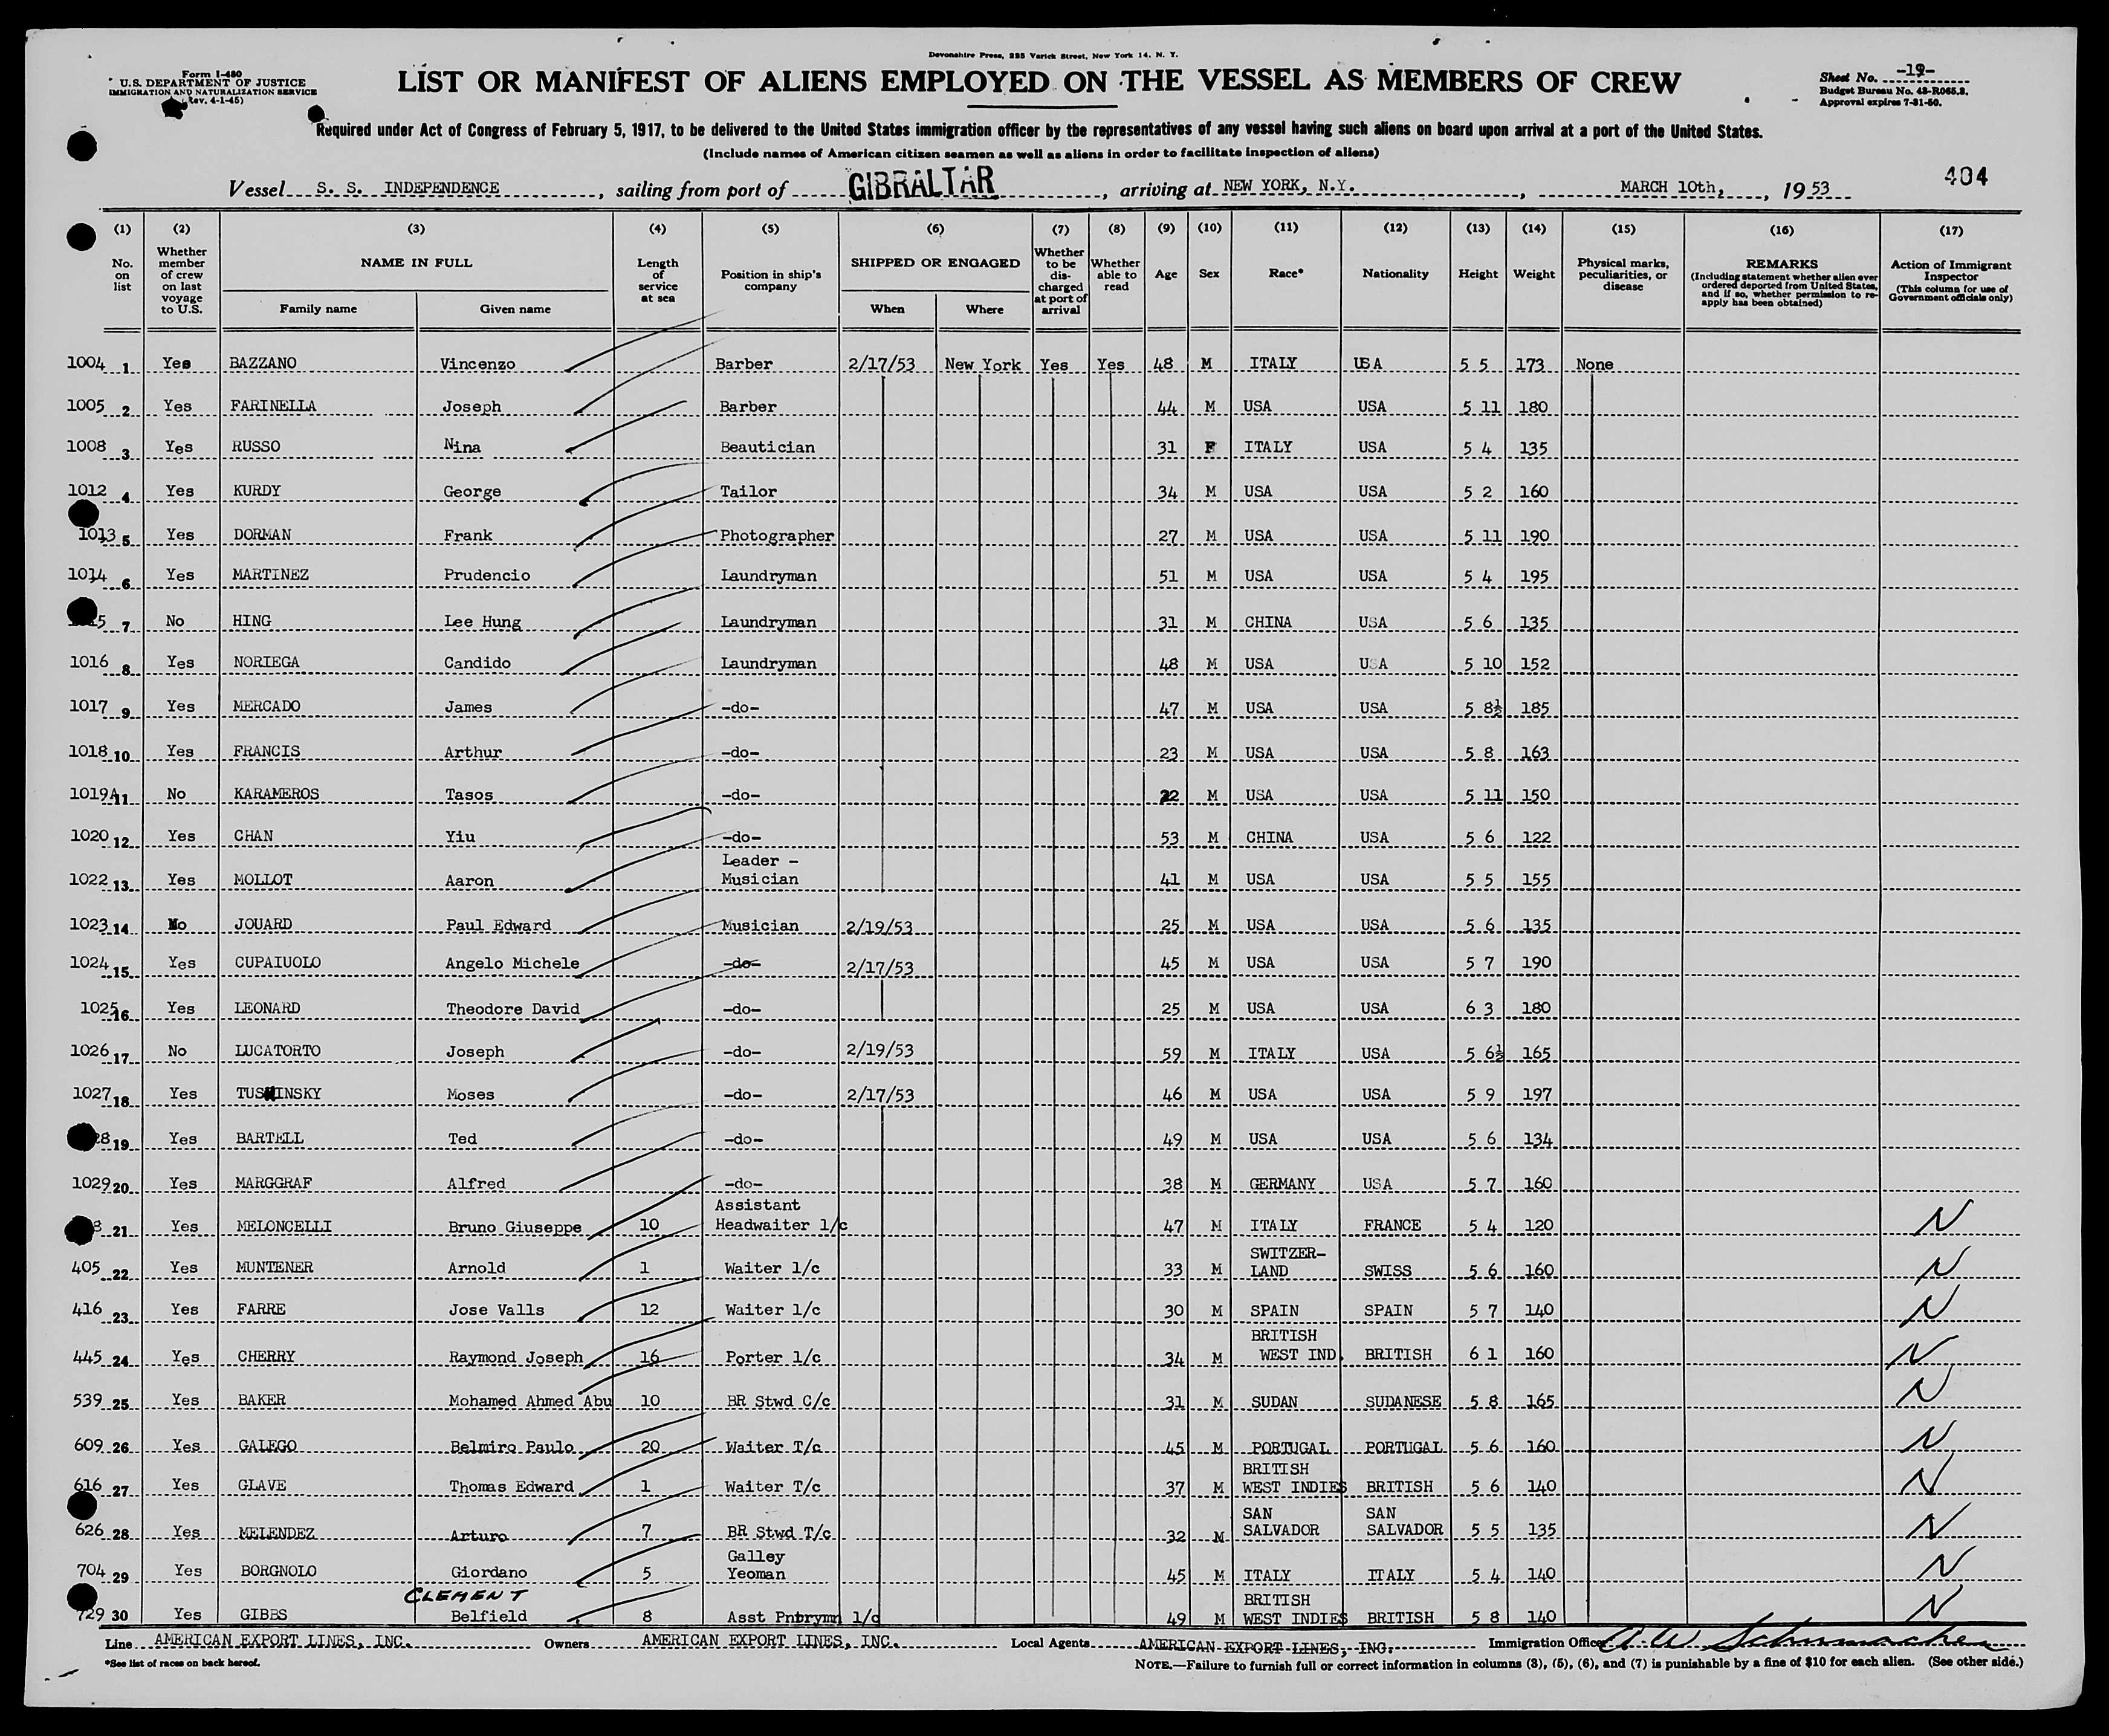 Devonshire Press, 225 Varick Street, New York 14, N. Y.
Form I-480
U.S. DEPARTMENT OF JUSTICE
IMMIGRATION AND NATURALIZATION SERVICE
(Rev. 4-1-45)
LIST OR MANIFEST OF ALIENS EMPLOYED ON THE VESSEL AS MEMBERS OF CREW
Sheet No. -19-
Budget Bureau No. 43-R065.3.
Approval expires 7-31-50.
Required under Act of Congress of February 5, 1917, to be delivered to the United States immigration officer by the representatives of any vessel having such aliens on board upon arrival at a port of the United States.
(Include names of American citizen seamen as well as aliens in order to facilitate inspection of aliens)
404
Vessel S. S. INDEPENDENCE, sailing from port of GIBRALTAR, arriving at NEW YORK, N.Y., MARCH 10th, 1953
(1) (2) (3) (4) (5) (6) (7) (8) (9) (10) (11) (12) (13) (14) (15) (16) (17)
No. on list
Whether member of crew on last voyage to U.S.
NAME IN FULL
Family name
Given name
Length of service at sea
Position in ship's company
SHIPPED OR ENGAGED
When
Where
Whether to be discharged at port of arrival
Whether able to read
Age
Sex
Race*
Nationality
Height
Weight
Physical marks, peculiarities, or disease
REMARKS
(Including statement whether alien ever ordered deported from United States, and if so, whether permission to reapply has been obtained)
Action of Immigrant Inspector
(This column for use of Government officials only)
1004 1 Yes BAZZANO Vincenzo Barber 2/17/53 New York Yes Yes 48 M ITALY USA 5 5 173 None
1005 2 Yes FARINELLA Joseph Barber 44 M USA USA 5 11 180
1008 3 Yes RUSSO Nina Beautician 31 F ITALY USA 5 4 135
1012 4 Yes KURDY George Tailor 34 M USA USA 5 2 160
1013 5 Yes DORMAN Frank Photographer 27 M USA USA 5 11 190
1014 6 Yes MARTINEZ Prudencio Laundryman 51 M USA USA 5 4 195
5 7 No HING Lee Hung Laundryman 31 M CHINA USA 5 6 135
1016 8 Yes NORIEGA Candido Laundryman 48 M USA USA 5 10 152
1017 9 Yes MERCADO James -do- 47 M USA USA 5 8½ 185
1018 10 Yes FRANCIS Arthur -do- 23 M USA USA 5 8 163
1019A 11 No KARAMEROS Tasos -do- 22 M USA USA 5 11 150
1020 12 Yes CHAN Yiu -do- 53 M CHINA USA 5 6 122
Leader -
1022 13 Yes MOLLOT Aaron Musician 41 M USA USA 5 5 155
1023 14 No JOUARD Paul Edward Musician 2/19/53 25 M USA USA 5 6 135
1024 15 Yes CUPAIUOLO Angelo Michele -do- 2/17/53 45 M USA USA 5 7 190
1025 16 Yes LEONARD Theodore David -do- 25 M USA USA 6 3 180
1026 17 No LUCATORTO Joseph -do- 2/19/53 59 M ITALY USA 5 6½ 165
1027 18 Yes TUSHINSKY Moses -do- 2/17/53 46 M USA USA 5 9 197
28 19 Yes BARTELL Ted -do- 49 M USA USA 5 6 134
1029 20 Yes MARGGRAF Alfred -do- 38 M GERMANY USA 5 7 160
Assistant
8 21 Yes MELONCELLI Bruno Giuseppe 10 Headwaiter 1/c 47 M ITALY FRANCE 5 4 120 N
SWITZER-
405 22 Yes MUNTENER Arnold 1 Waiter 1/c 33 M LAND SWISS 5 6 160 N
416 23 Yes FARRE Jose Valls 12 Waiter 1/c 30 M SPAIN SPAIN 5 7 140 N
BRITISH
445 24 Yes CHERRY Raymond Joseph 16 Porter 1/c 34 M WEST IND. BRITISH 6 1 160 N
539 25 Yes BAKER Mohamed Ahmed Abu 10 BR Stwd C/c 31 M SUDAN SUDANESE 5 8 165 N
609 26 Yes GALEGO Belmiro Paulo 20 Waiter T/c 45 M PORTUGAL PORTUGAL 5 6 160 N
BRITISH
616 27 Yes GLAVE Thomas Edward 1 Waiter T/c 37 M WEST INDIES BRITISH 5 6 140 N
SAN SAN
626 28 Yes MELENDEZ Arturo 7 BR Stwd T/c 32 M SALVADOR SALVADOR 5 5 135 N
Galley
704 29 Yes BORGNOLO Giordano 5 Yeoman 45 M ITALY ITALY 5 4 140 N
CLEMENT BRITISH
729 30 Yes GIBBS Belfield 8 Asst Pntrymn 1/c 49 M WEST INDIES BRITISH 5 8 140 N
Line AMERICAN EXPORT LINES, INC. Owners AMERICAN EXPORT LINES, INC. Local Agents AMERICAN EXPORT LINES, INC. Immigration Officer A W Schumacher
*See list of races on back hereof.
NOTE.—Failure to furnish full or correct information in columns (3), (5), (6), and (7) is punishable by a fine of $10 for each alien. (See other side.)